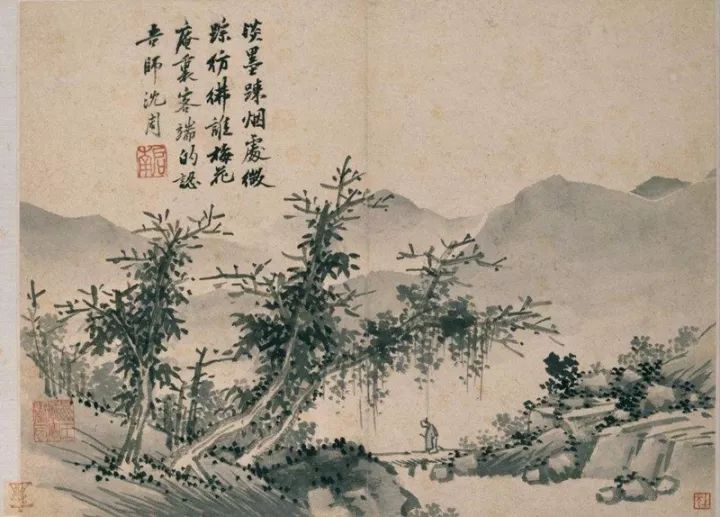 淡墨疎烟處微
踪彷彿誰梅花
庵裏客端的認
吾師沈周
啓南